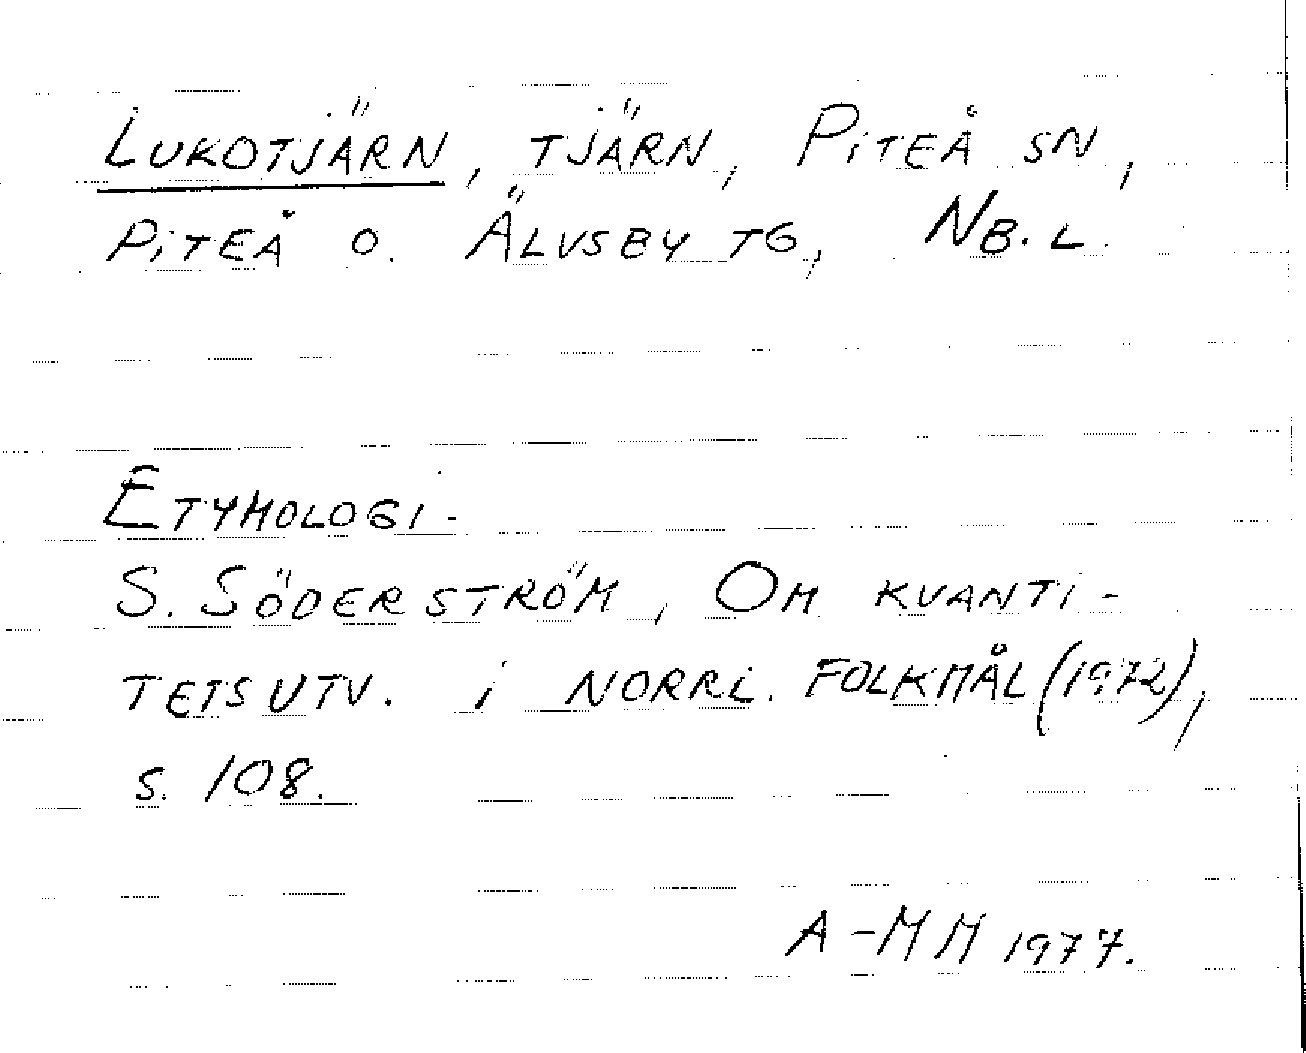 LUKOTJÄRN, TJÄRN, PITEÅ SN,
PITEÅ O. ÄLVSBY TG, NB. L.
ETYMOLOGI.
S. SÖDERSTRÖM, OM KVANTI-
TETSUTV. I NORRL. FOLKMÅL (1972),
S. 108.
A-MM 1977.